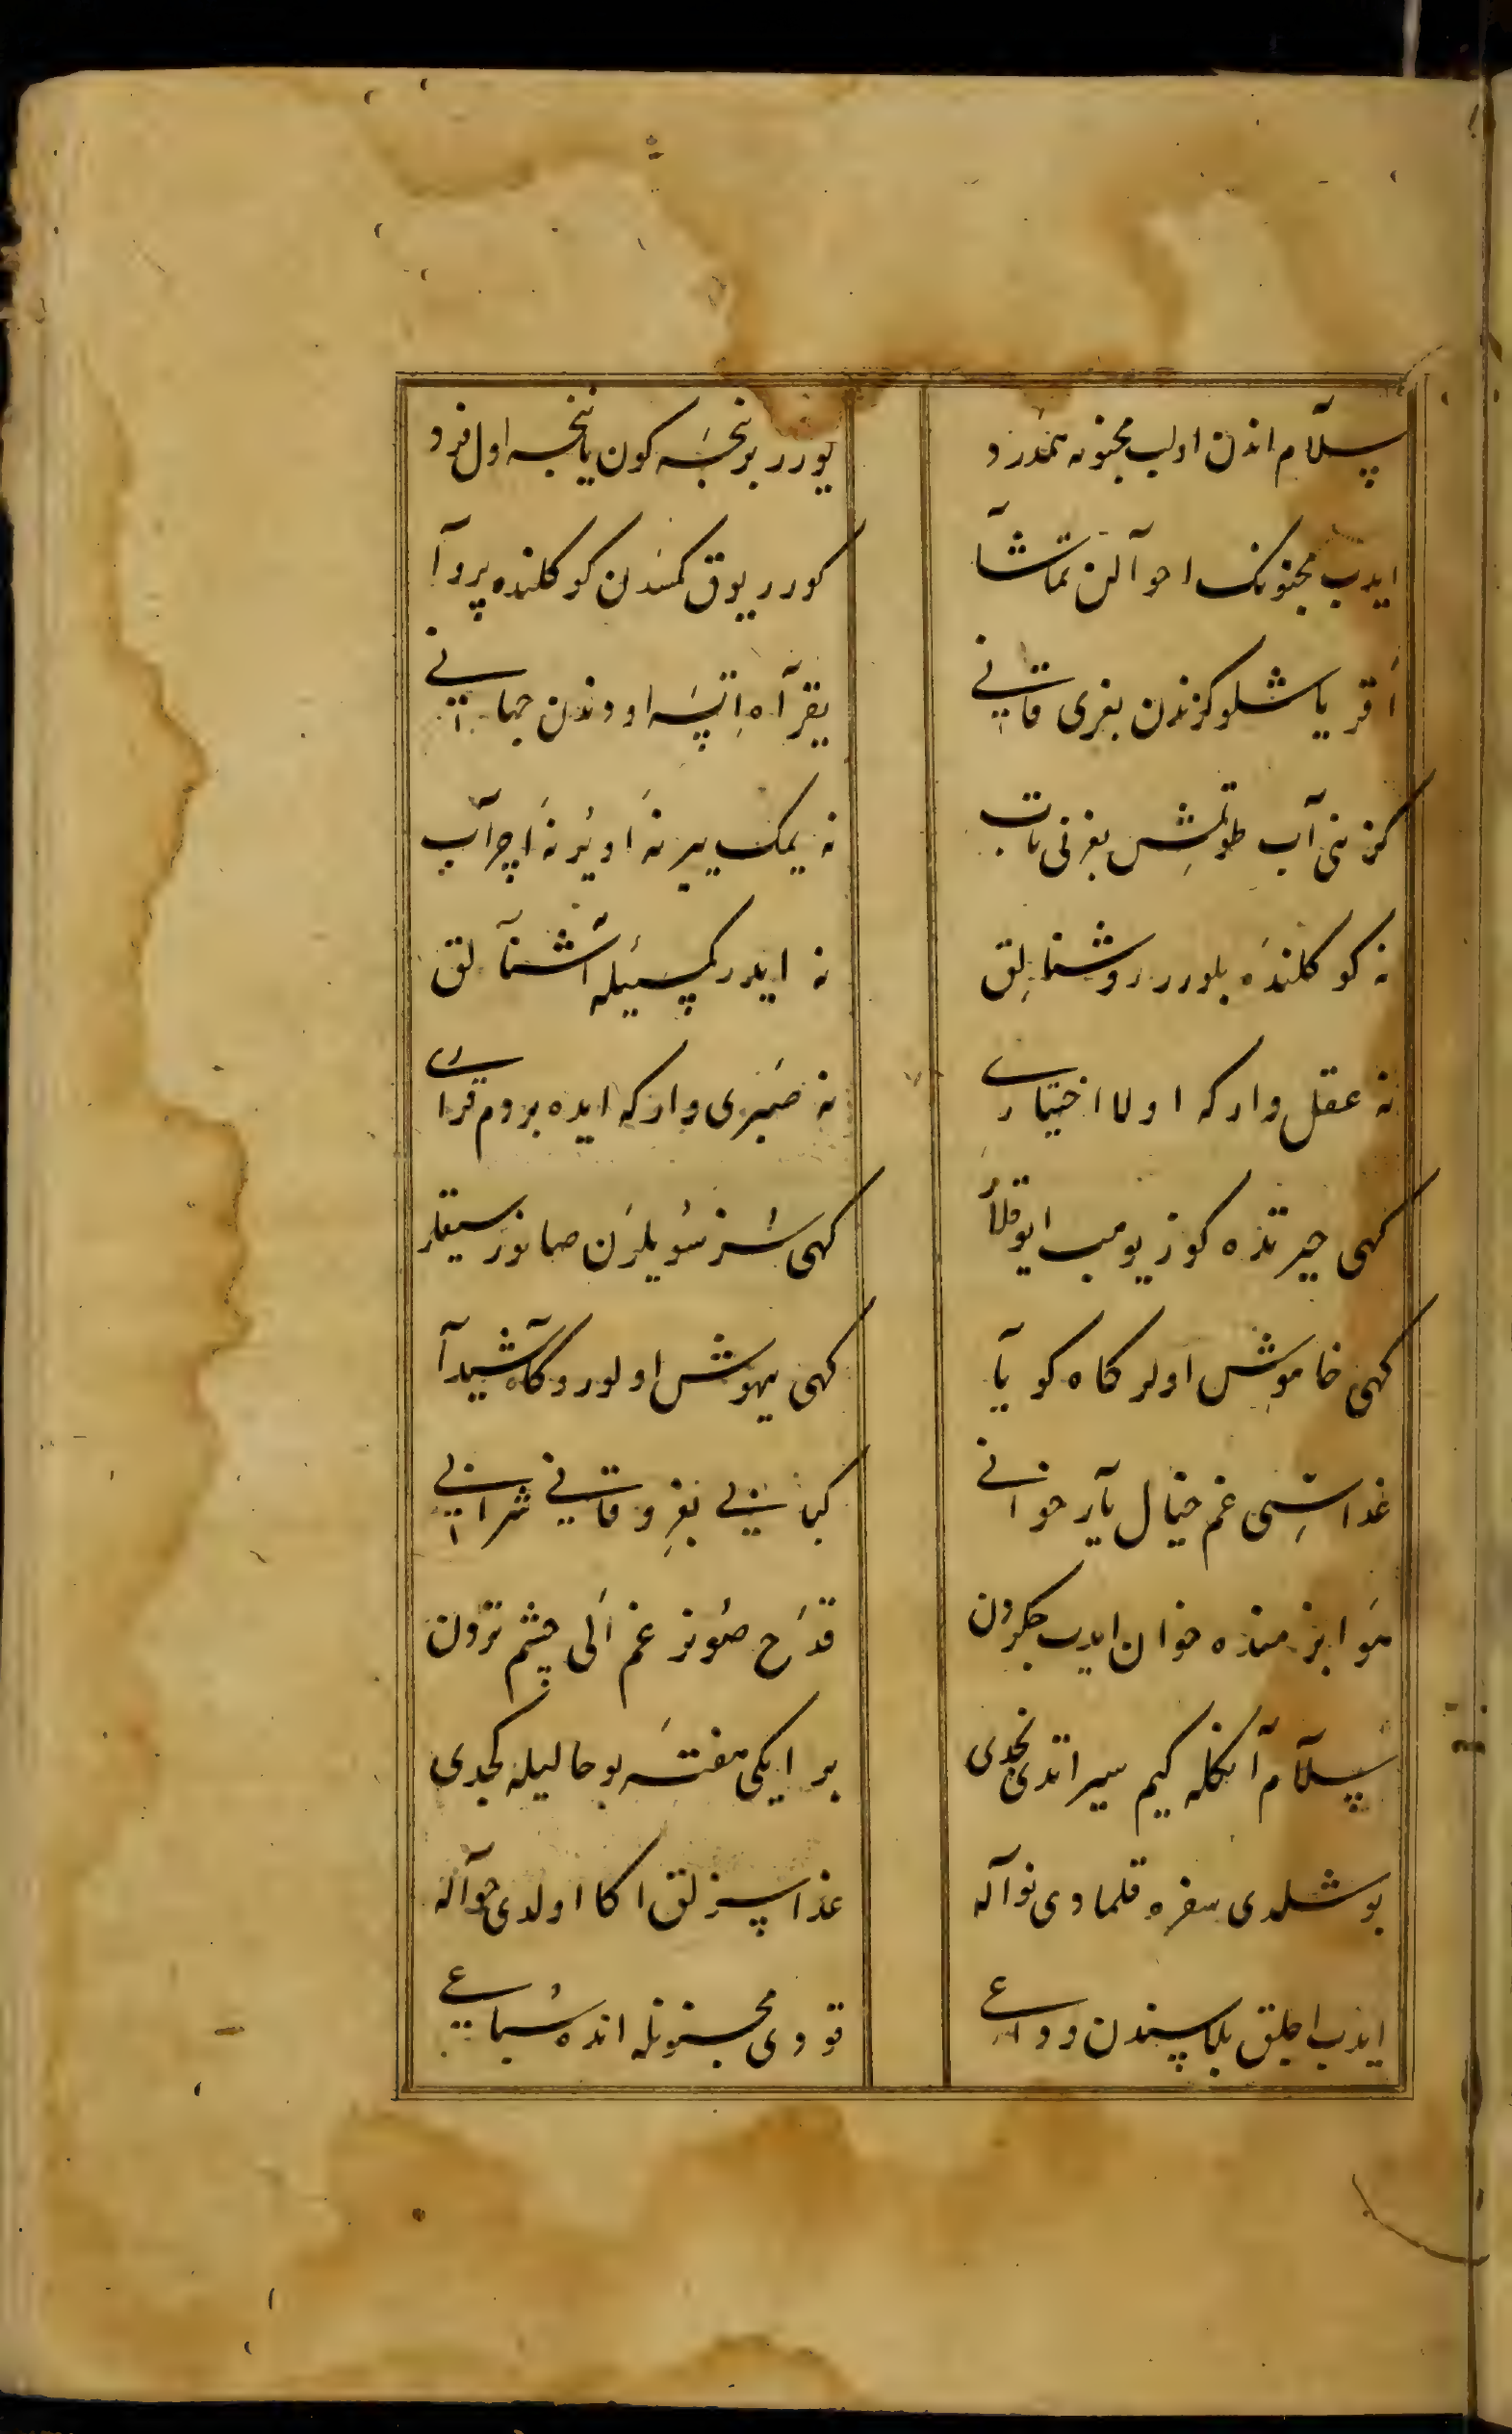 سلآم اندن اولب مجنونه همدرد
یورر بر نجه کون یاننجه اول فرد
ایدب مجنونک احوآلن تماشآ
کورر یوق کمسدن کوکلنده پروآ
اَقر یاشلو کزندن بغری قانی
یقر آه اتسه اودندن جهانی
کزننی آب طوتمش بغرنی تاب
نه یمک ییر نه اویُر نه اِچر آب
نه کوکلنده بلورر روشنالِق
نه ایدر کمسیله آشنآلق
نه عقل وار که اولا اختیاری
نه صبری وار که ایده بر دم قراری
کهی حیرتده کوز یومب ایوقلر
کهی سُز سُویلرَن صانور سیقلر
کهی خاموش اولر کاه کویآ
کهی بیهوش اولور و کآه شیدآ
غداسی غم خیال یآر خوانی
کبابی بغرِ و قانی شرابی
هوا بزمنده خوان ایدب جکرون
قدَح صُونر غم اَلی چشم ترون
سلآم آنکله کیم سیر اتدی نجدی
بر ایکی هفته بو حالیله کجدی
بوشلدی سفره قلمادی نوآله
غداسزلق اکا اولدی حوآله
ایدب اجلق بلاسندن وداعی
قودی مجنونله انده سُماعی